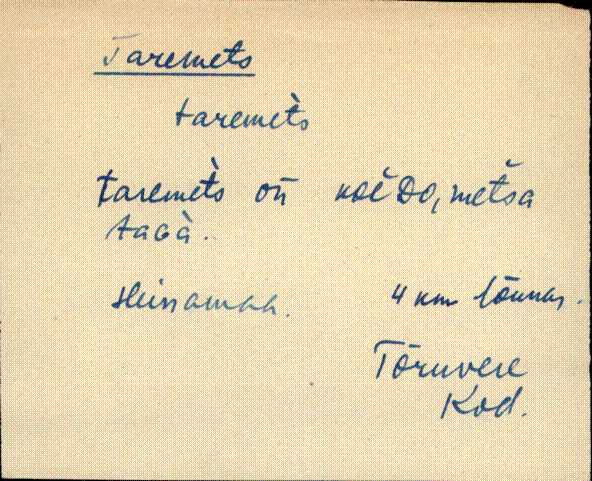 Taremets
taremèts
taremèts on metsa
tagà.
Heinamaa. 4 km lõunas.
Tõruvere
Kod.